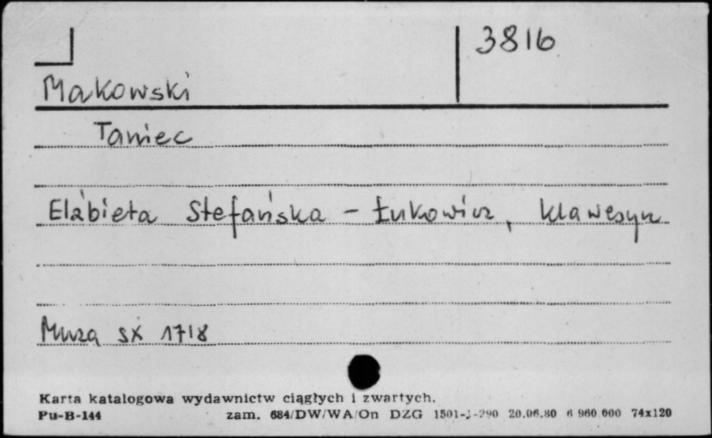 3816
Makowski
Taniec
Elżbieta Stefańska - Łukowicz, klawesyn
Muza SX 1718
Karta katalogowa wydawnictw ciągłych i zwartych.
Pu-B-144 zam. 684/DW/WA/On DZG 1501-J-290 20.06.80 6 960 000 74x120